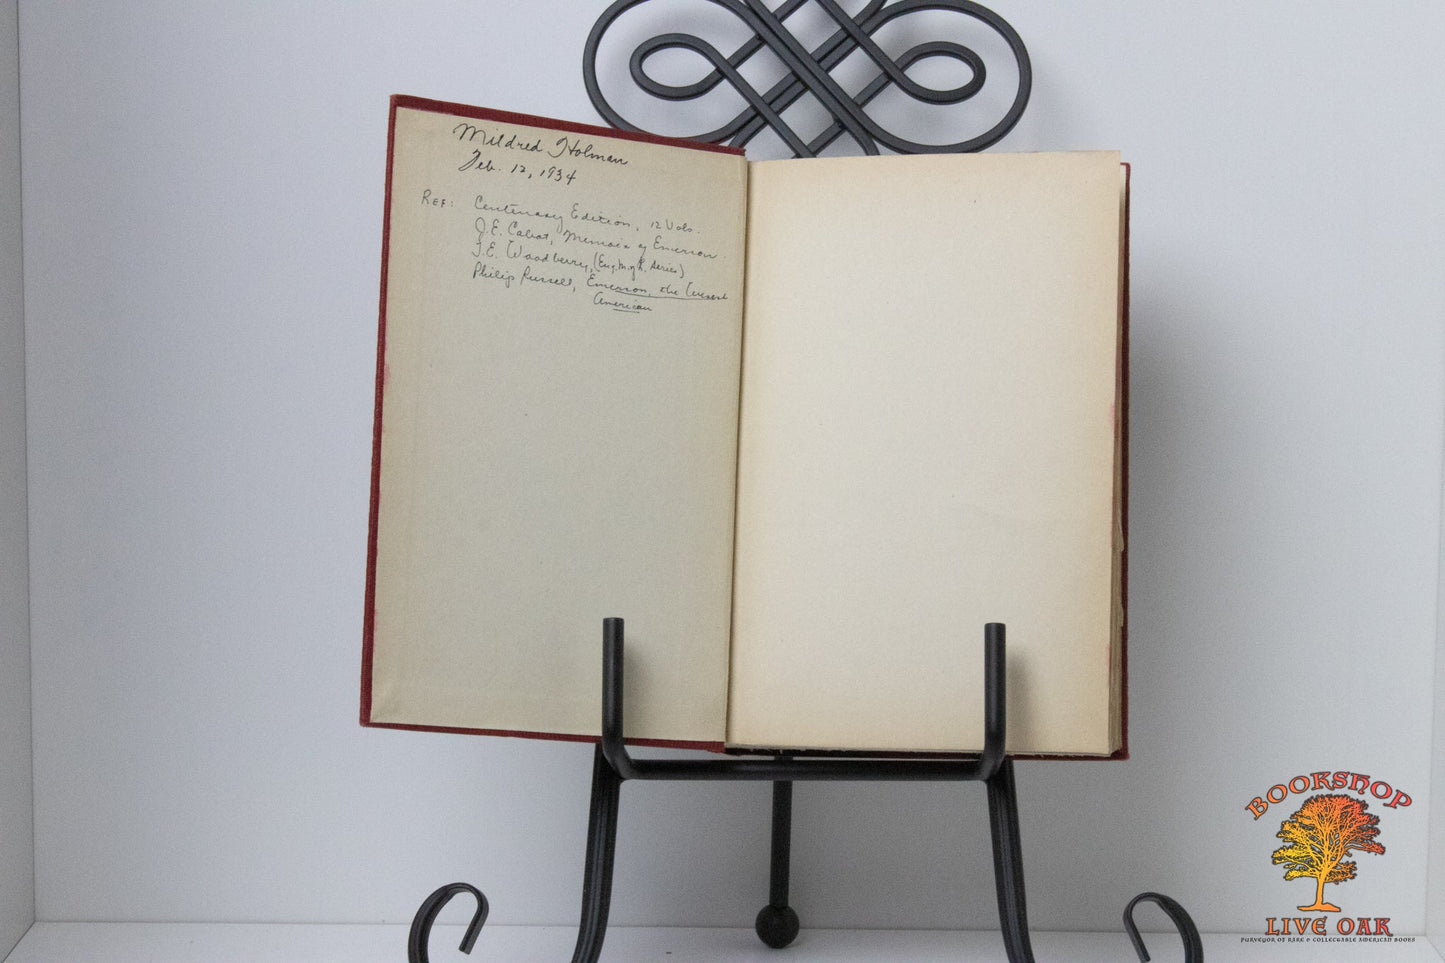 Mildred Holman
Feb. 12, 1934
REF: Centenary Edition, 12 Vols.
J.E. Cabot, Memoir of Emerson.
J.E. Woodberry, (Eng. M. of L. series)
Philip Russell, Emerson, the Wisest
American
BOOKSHOP
LIVE OAK
PURVEYOR OF RARE & COLLECTABLE AMERICAN BOOKS